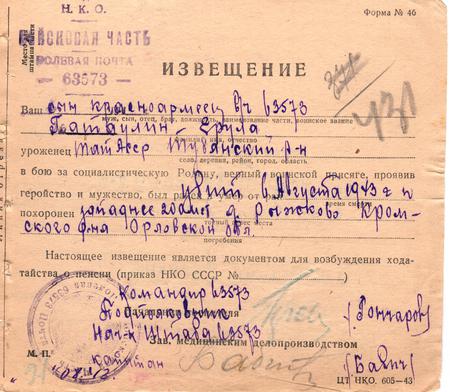 Н. К. О.
Форма № 46
Место для
штампа части
ВОЙСКОВАЯ ЧАСТЬ
ПОЛЕВАЯ ПОЧТА
— 63573 —
ИЗВЕЩЕНИЕ
431
Ваш сын красноармеец в/ч 63573
муж, сын, отец, брат, должность, наименование части, воинское звание
Гатаулин
фамилия, имя, отчество
уроженец Тат АССР р-н
село, деревня, район, город, область
в бою за социалистическую Родину, верный воинской присяге, проявив
геройство и мужество, был убит 6 Августа 1943 г и
время смерти
похоронен западнее 200 мет д. Рыжково Кром-
ского р-на Орловской обл.
погребения
Настоящее извещение является документом для возбуждения хода-
тайства о пенсии (приказ НКО СССР №
Командир 63573
Подполковник
(Гончаров)
Нач Штаба 63573
Зав. медицинским делопроизводством
М. П.
капитан
(Бабич)
ЦТ НКО 605—43